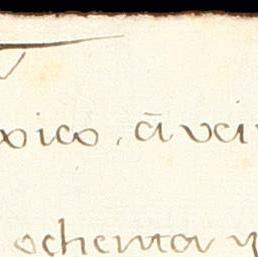 xico. á vei
ochenta y